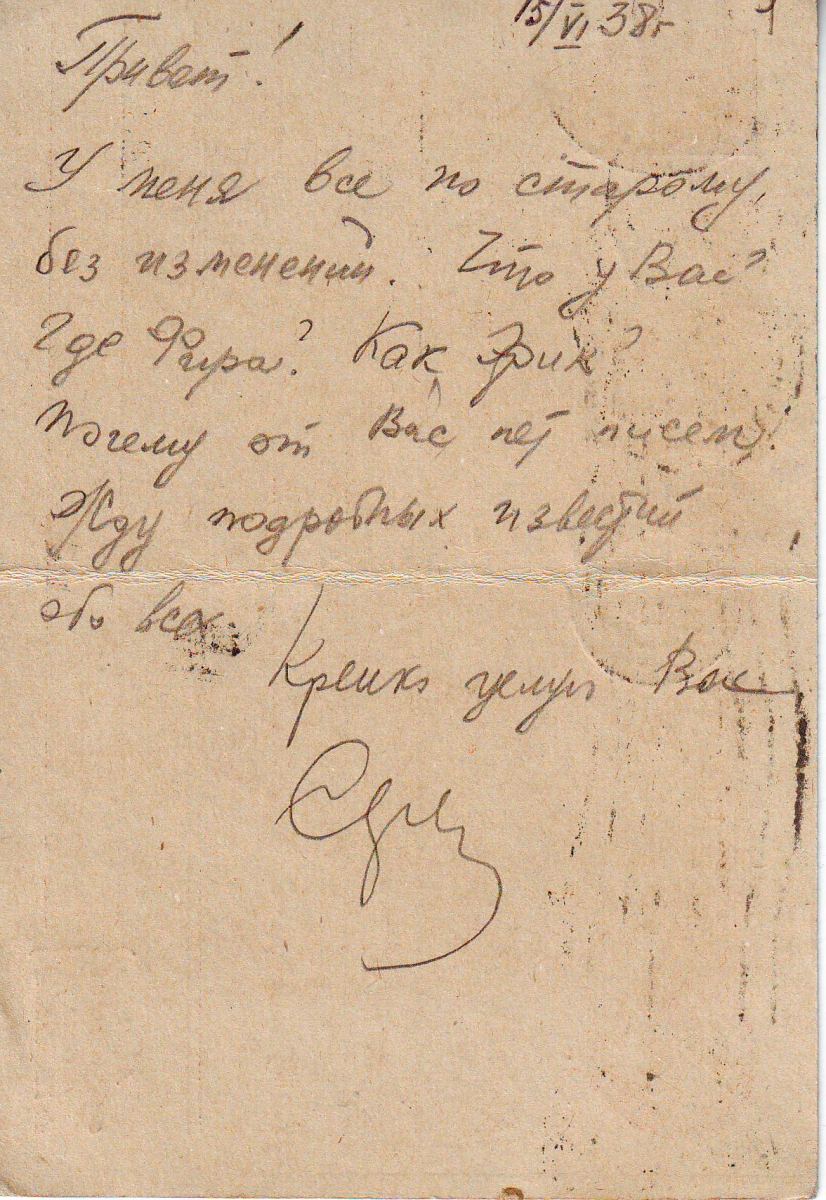 15/VI 38г
Привет!
У меня все по старому,
без изменений. Что у Вас?
Где Фира? Как Эрик?
Почему от Вас нет писем?
Жду подробных известий
обо всех.
Крепко целую Вас